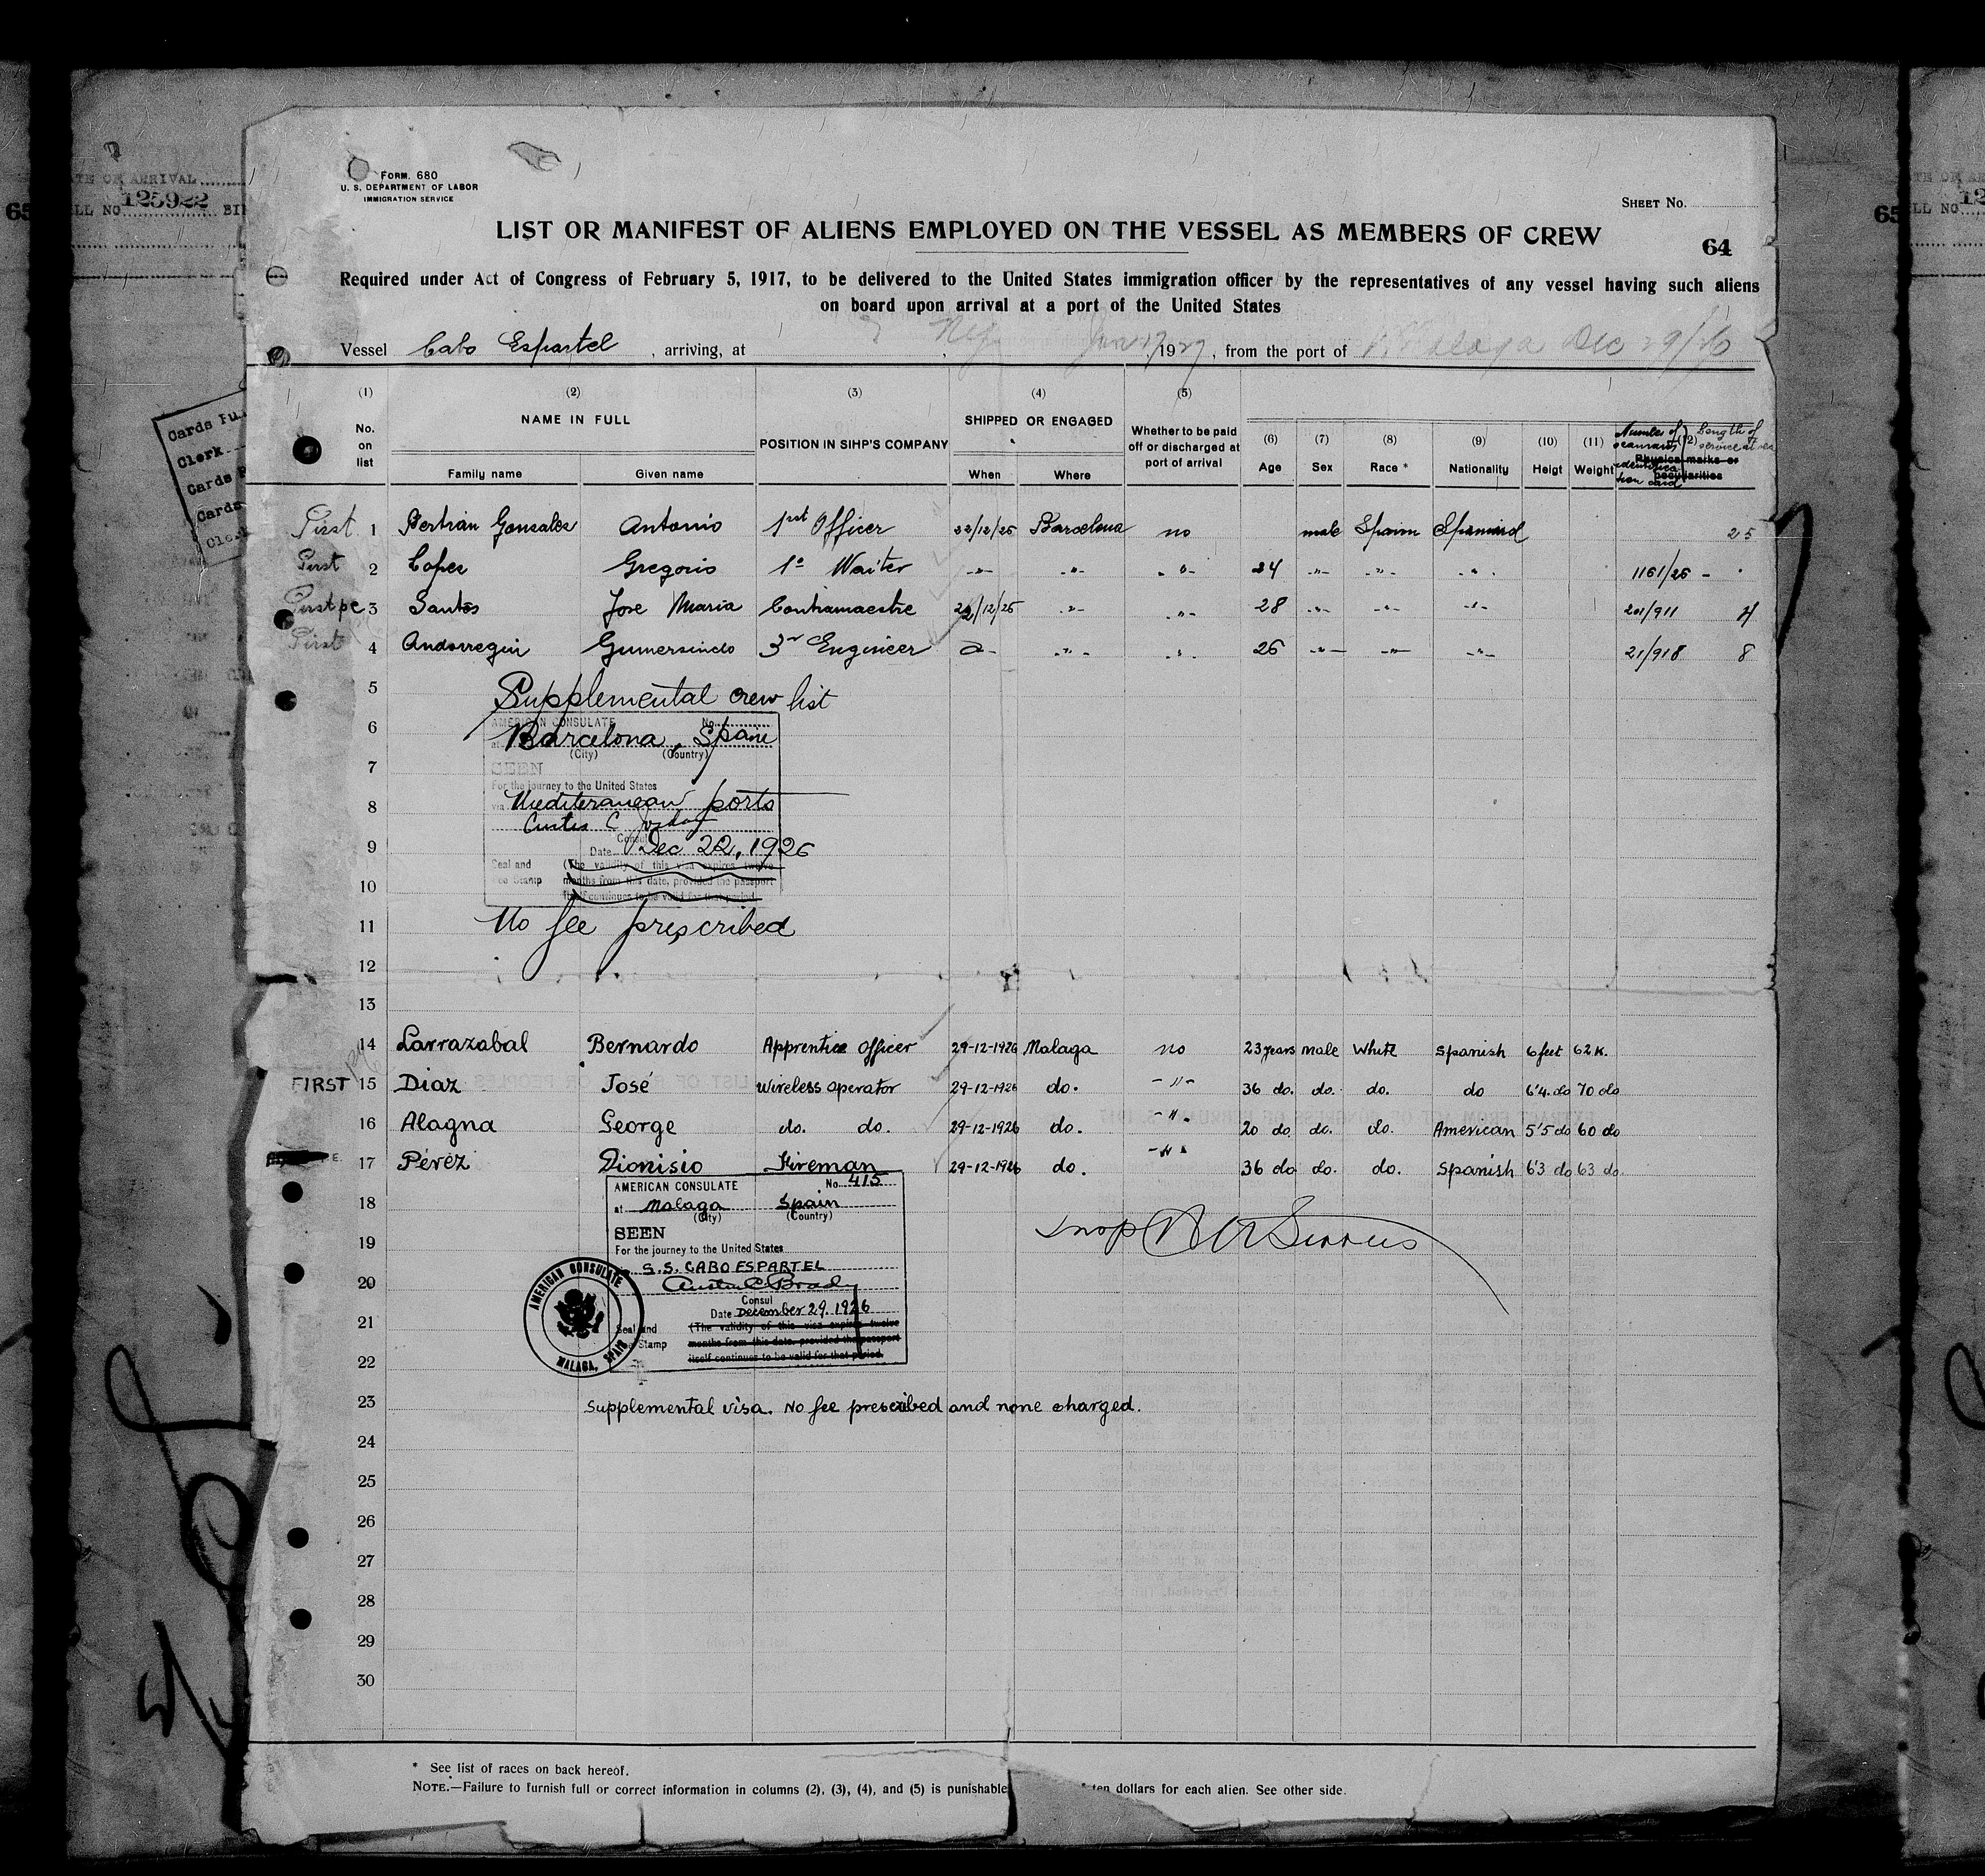 FORM. 680
U. S. DEPARTMENT OF LABOR
IMMIGRATION SERVICE
SHEET No.
LIST OR MANIFEST OF ALIENS EMPLOYED ON THE VESSEL AS MEMBERS OF CREW
64
Required under Act of Congress of February 5, 1917, to be delivered to the United States immigration officer by the representatives of any vessel having such aliens
on board upon arrival at a port of the United States
Vessel Cabo Espartel, arriving, at Jan 1927, from the port of Malaga Dec 29/26
(1) (2) (3) (4) (5)
No. on list
NAME IN FULL
Family name Given name
POSITION IN SIHP'S COMPANY
SHIPPED OR ENGAGED
When Where
Whether to be paid off or discharged at port of arrival
(6) Age
(7) Sex
(8) Race *
(9) Nationality
(10) Heigt
(11) Weight
(12) Physical marks or peculiarities
Number of seamans identification card
Length of service at sea
First 1 Bertrán Gonzalez Antonio 1rst Officer 22/12/26 Barcelona no male Spain Spaniard 25
First 2 Lopez Gregorio 1º Waiter -"- -"- -"- 24 -"- -"- -"- 1161/26 -
First 3 Santos Jose Maria Contramaestre /12/26 -"- -"- 28 -"- -"- -"- 201/911 4
First 4 Gumersindo 3r Engineer -"- -"- 26 -"- -"- -"- 21/918 8
5 Supplemental crew list
6 AMERICAN CONSULATE No.
at Barcelona, Spain
(City) (Country)
7 SEEN
For the journey to the United States
8 via Mediteranean ports
Consul
9 Date Dec 22, 1926
Seal and (The validity of this visa expires twelve
10 Fee Stamp months from this date, provided the passport
itself continues to be valid for that period.
11 No fee prescribed
12
13
14 Larrazabal Bernardo Apprentice officer 29-12-1926 Malaga no 23 years male White Spanish 6 feet 62 K.
FIRST 15 Diaz José wireless operator 29-12-1926 do. -"- 36 do. do. do. do 6'4. do 70 do
16 Alagna George do. do. 29-12-1926 do. -"- 20 do. do. do. American 5'5 do 60 do
17 Pérez Dionisio Fireman 29-12-1926 do. -"- 36 do do. do. Spanish 6'3 do 63 do.
AMERICAN CONSULATE No. 415
18 at Malaga Spain
(City) (Country)
SEEN
19 For the journey to the United States
S.S. CABO ESPARTEL
20
Consul
Date December 29. 1926
21 Seal and (The validity of this visa expires twelve
Stamp months from this date, provided the passport
22 itself continues to be valid for that period.
AMERICAN CONSULATE
MALAGA, SPAIN
23 Supplemental visa. No fee prescribed and none charged.
24
25
26
27
28
29
30
* See list of races on back hereof.
NOTE.—Failure to furnish full or correct information in columns (2), (3), (4), and (5) is punishable ten dollars for each alien. See other side.
Cards
Clerk
Cards
Cards
OF ARRIVAL
65 LL NO. 125922
65 LL NO. 12